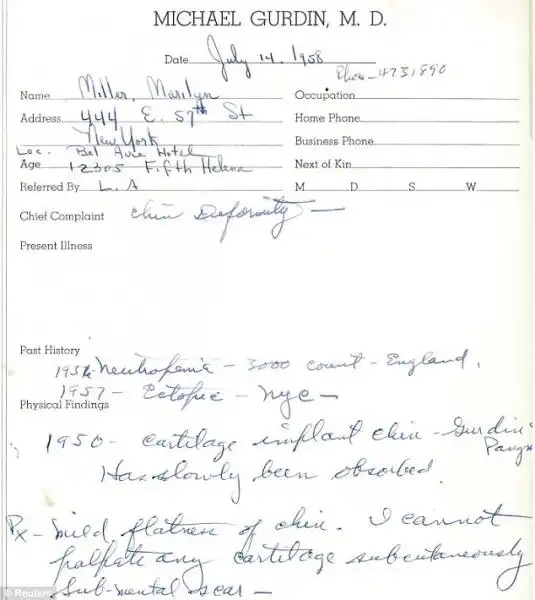 MICHAEL GURDIN, M. D.
Date July 14, 1958
Phon-4731890
Name Miller, Marilyn
Occupation
Address 444 E. 57th St
Home Phone
New York
Business Phone
Loc. Bel Aire Hotel
Age 12305 Fifth Helena
Next of Kin
Referred By L. A
M D S W
Chief Complaint chin deformity —
Present Illness
Past History
1956 Neutropenia - 3000 count - England.
1957 - Ectopic - NYC -
Physical Findings
1950 - cartilage implant chin - Gurdin
Has slowly been absorbed.
Px - mild flatness of chin. I cannot
palpate any cartilage subcutaneously
Sub-mental scar -
© Reuters